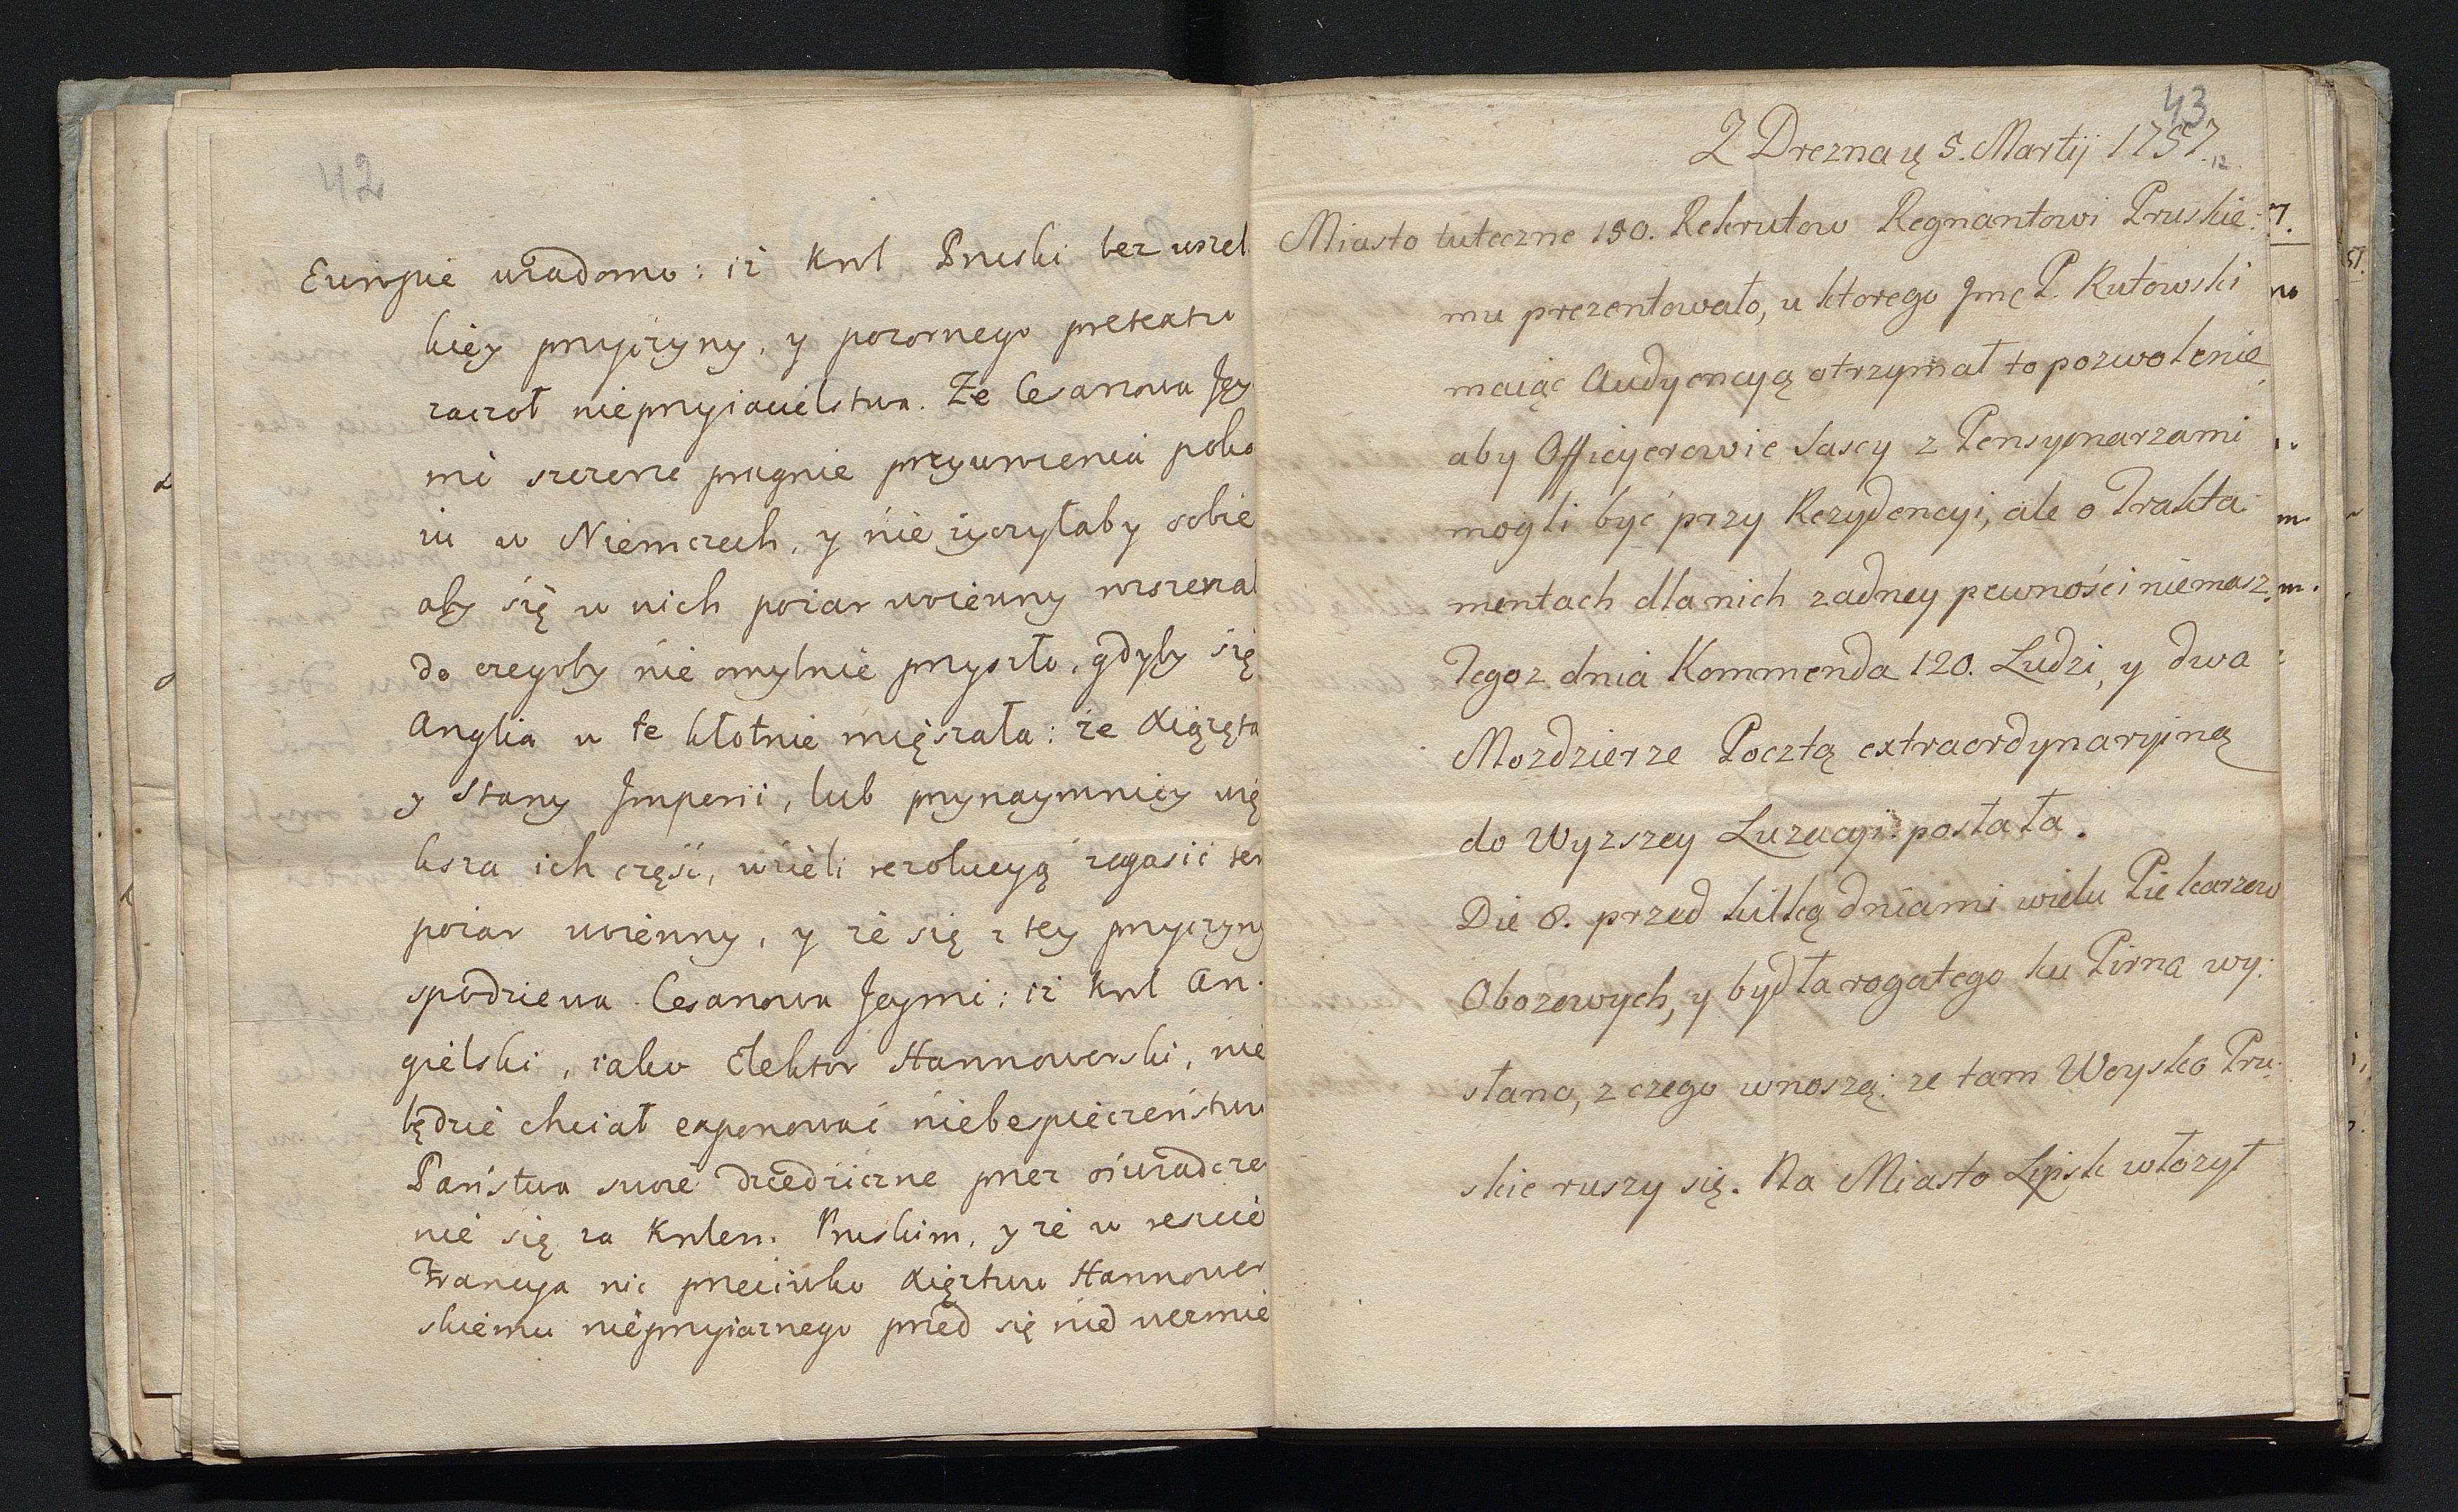 42
Europie wiadomo: iż Krol Pruski bez wszel
kiey przyczyny, y pozornego pretextu
zaczoł nieprzyiacielstwa. Ze Cesarzowa Jey
mć szczerze pragnie przywrocenia poko
iu w Niemczech, y nie życzyłaby sobie
aby się w nich pożar woienny wszczał
do czegoby nie omylnie przyszło, gdyby się
Anglia w te kłotnie mięszała: że Xiążęta
y Stany Imperii, lub przynaymniey wię
ksza ich część, wzieli rezolucyą zagasić ten
pożar woienny, y że się z tey przyczyny
spodziewa Cesarzowa Jeymć: iż Krol An-
gielski, iako Elektor Hannowerski, nie
będzie chciał exponować niebespieczeństwu
Państwa swoie dziedziczne przez oświadcze
nie się za Krolem Pruskim, y że w reszcie
Francya nic przeciwko Xięztwu Hannower
skiemu nieprzyiaznego przed się nie d weźmie
43
Z Drezna ą 5. Martij 1757.
12
Miasto tuteczne 150. Rekrutow Regnantowi Pruskie-
mu prezentowało, u ktorego Jmć P. Rutowski
maiąc Audyencyą otrzymał to pozwolenie
aby Officyerowie Sascy z Pensyonarzami
mogli być przy Rezydencyi, ale o Trakta-
mentach dla nich zadney pewności niemasz.
Tegoz dnia Kommenda 120. Ludzi, y dwa
Mozdzierze Pocztą extraordynaryiną
do Wyzszey Luzacyi posłała.
Die 8. przed kilką dniami wielu Piekarzow
Obozowych, y bydła rogatego ku Pirna wy-
słano, z czego wnoszą: ze tam Woysko Pru-
skie ruszy się. Na Miasto Lipsk włozył